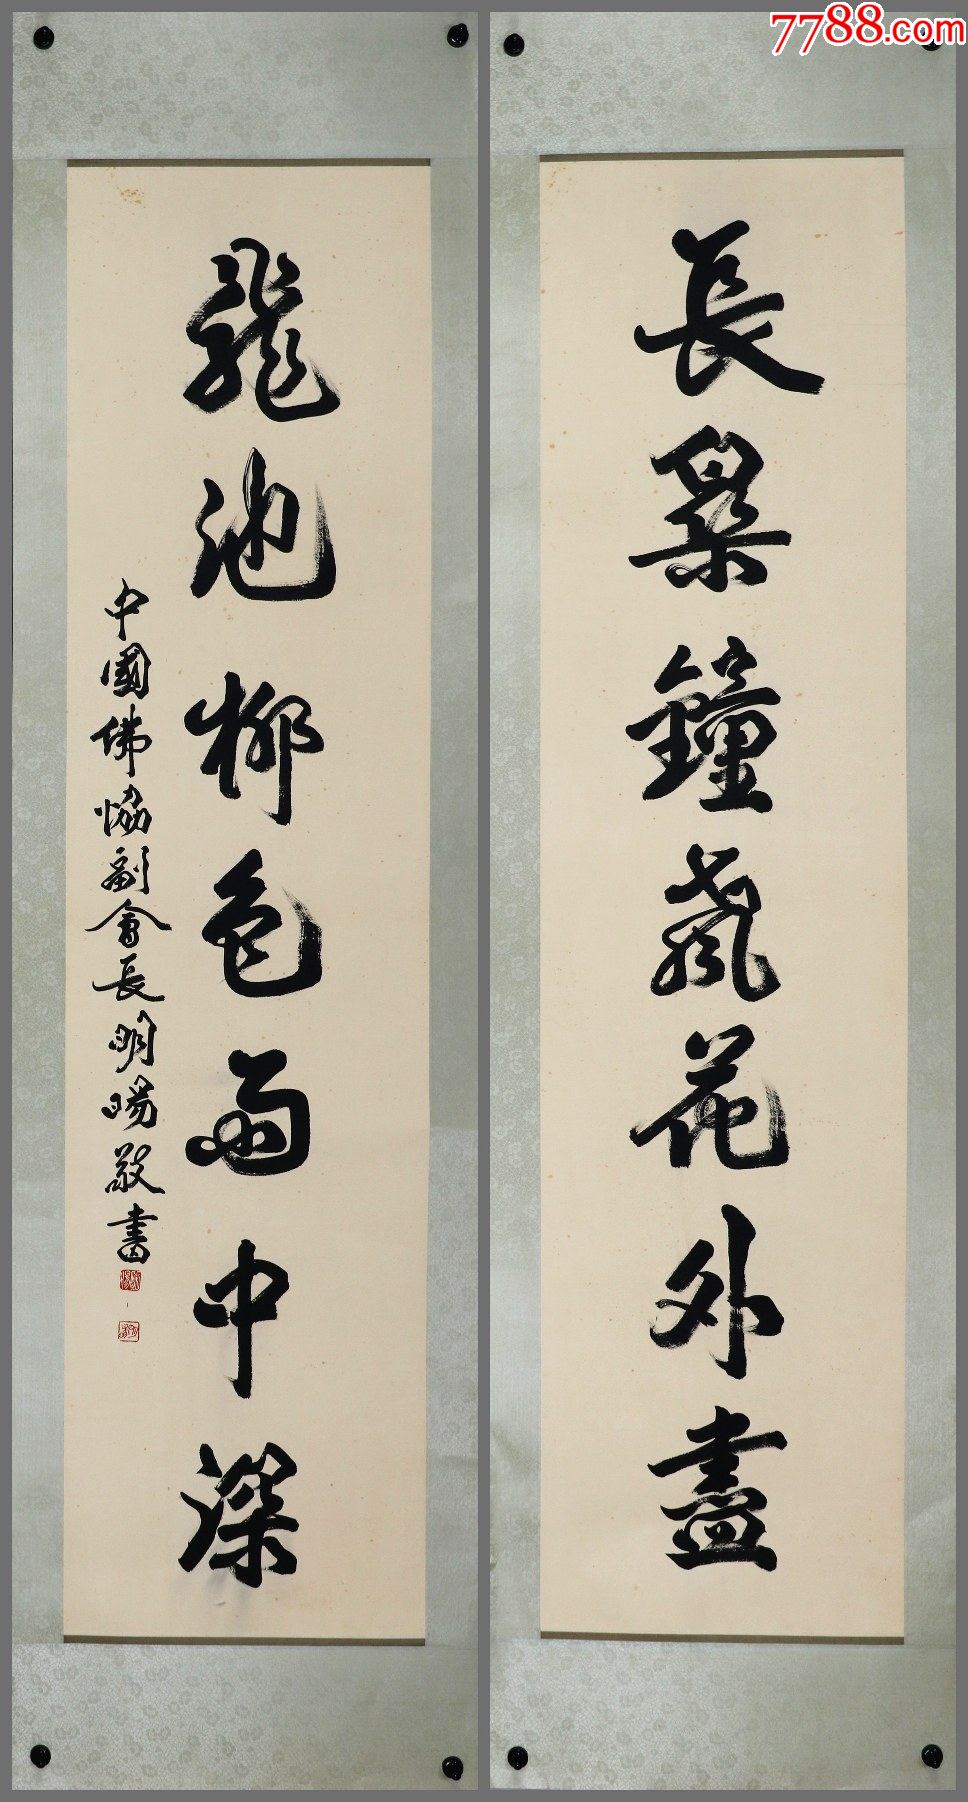 7788.com
長樂鐘聲花外盡
龍池柳色雨中深
中國佛恊副會長明暘敬書